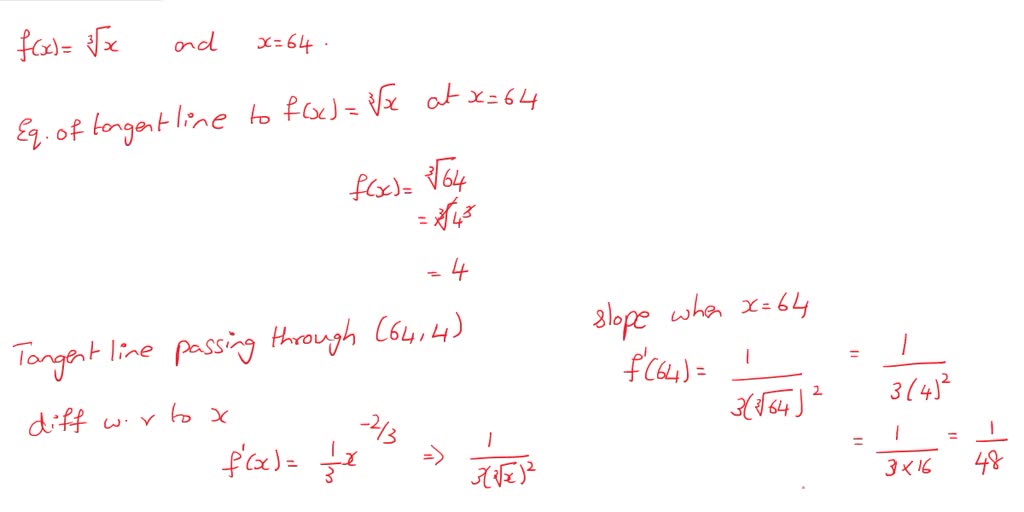 f(x) = ∛x and x=64.
Eq. of tangent line to f(x) = ∛x at x=64
f(x) = ∛64
= ∛4³
= 4
Tangent line passing through (64,4)
diff w.r to x
f'(x) = 1/3 x^(-2/3) ⇒ 1/(3(∛x)²)
slope when x=64
f'(64) = 1/(3(∛64)²) = 1/(3(4)²)
= 1/(3×16) = 1/48